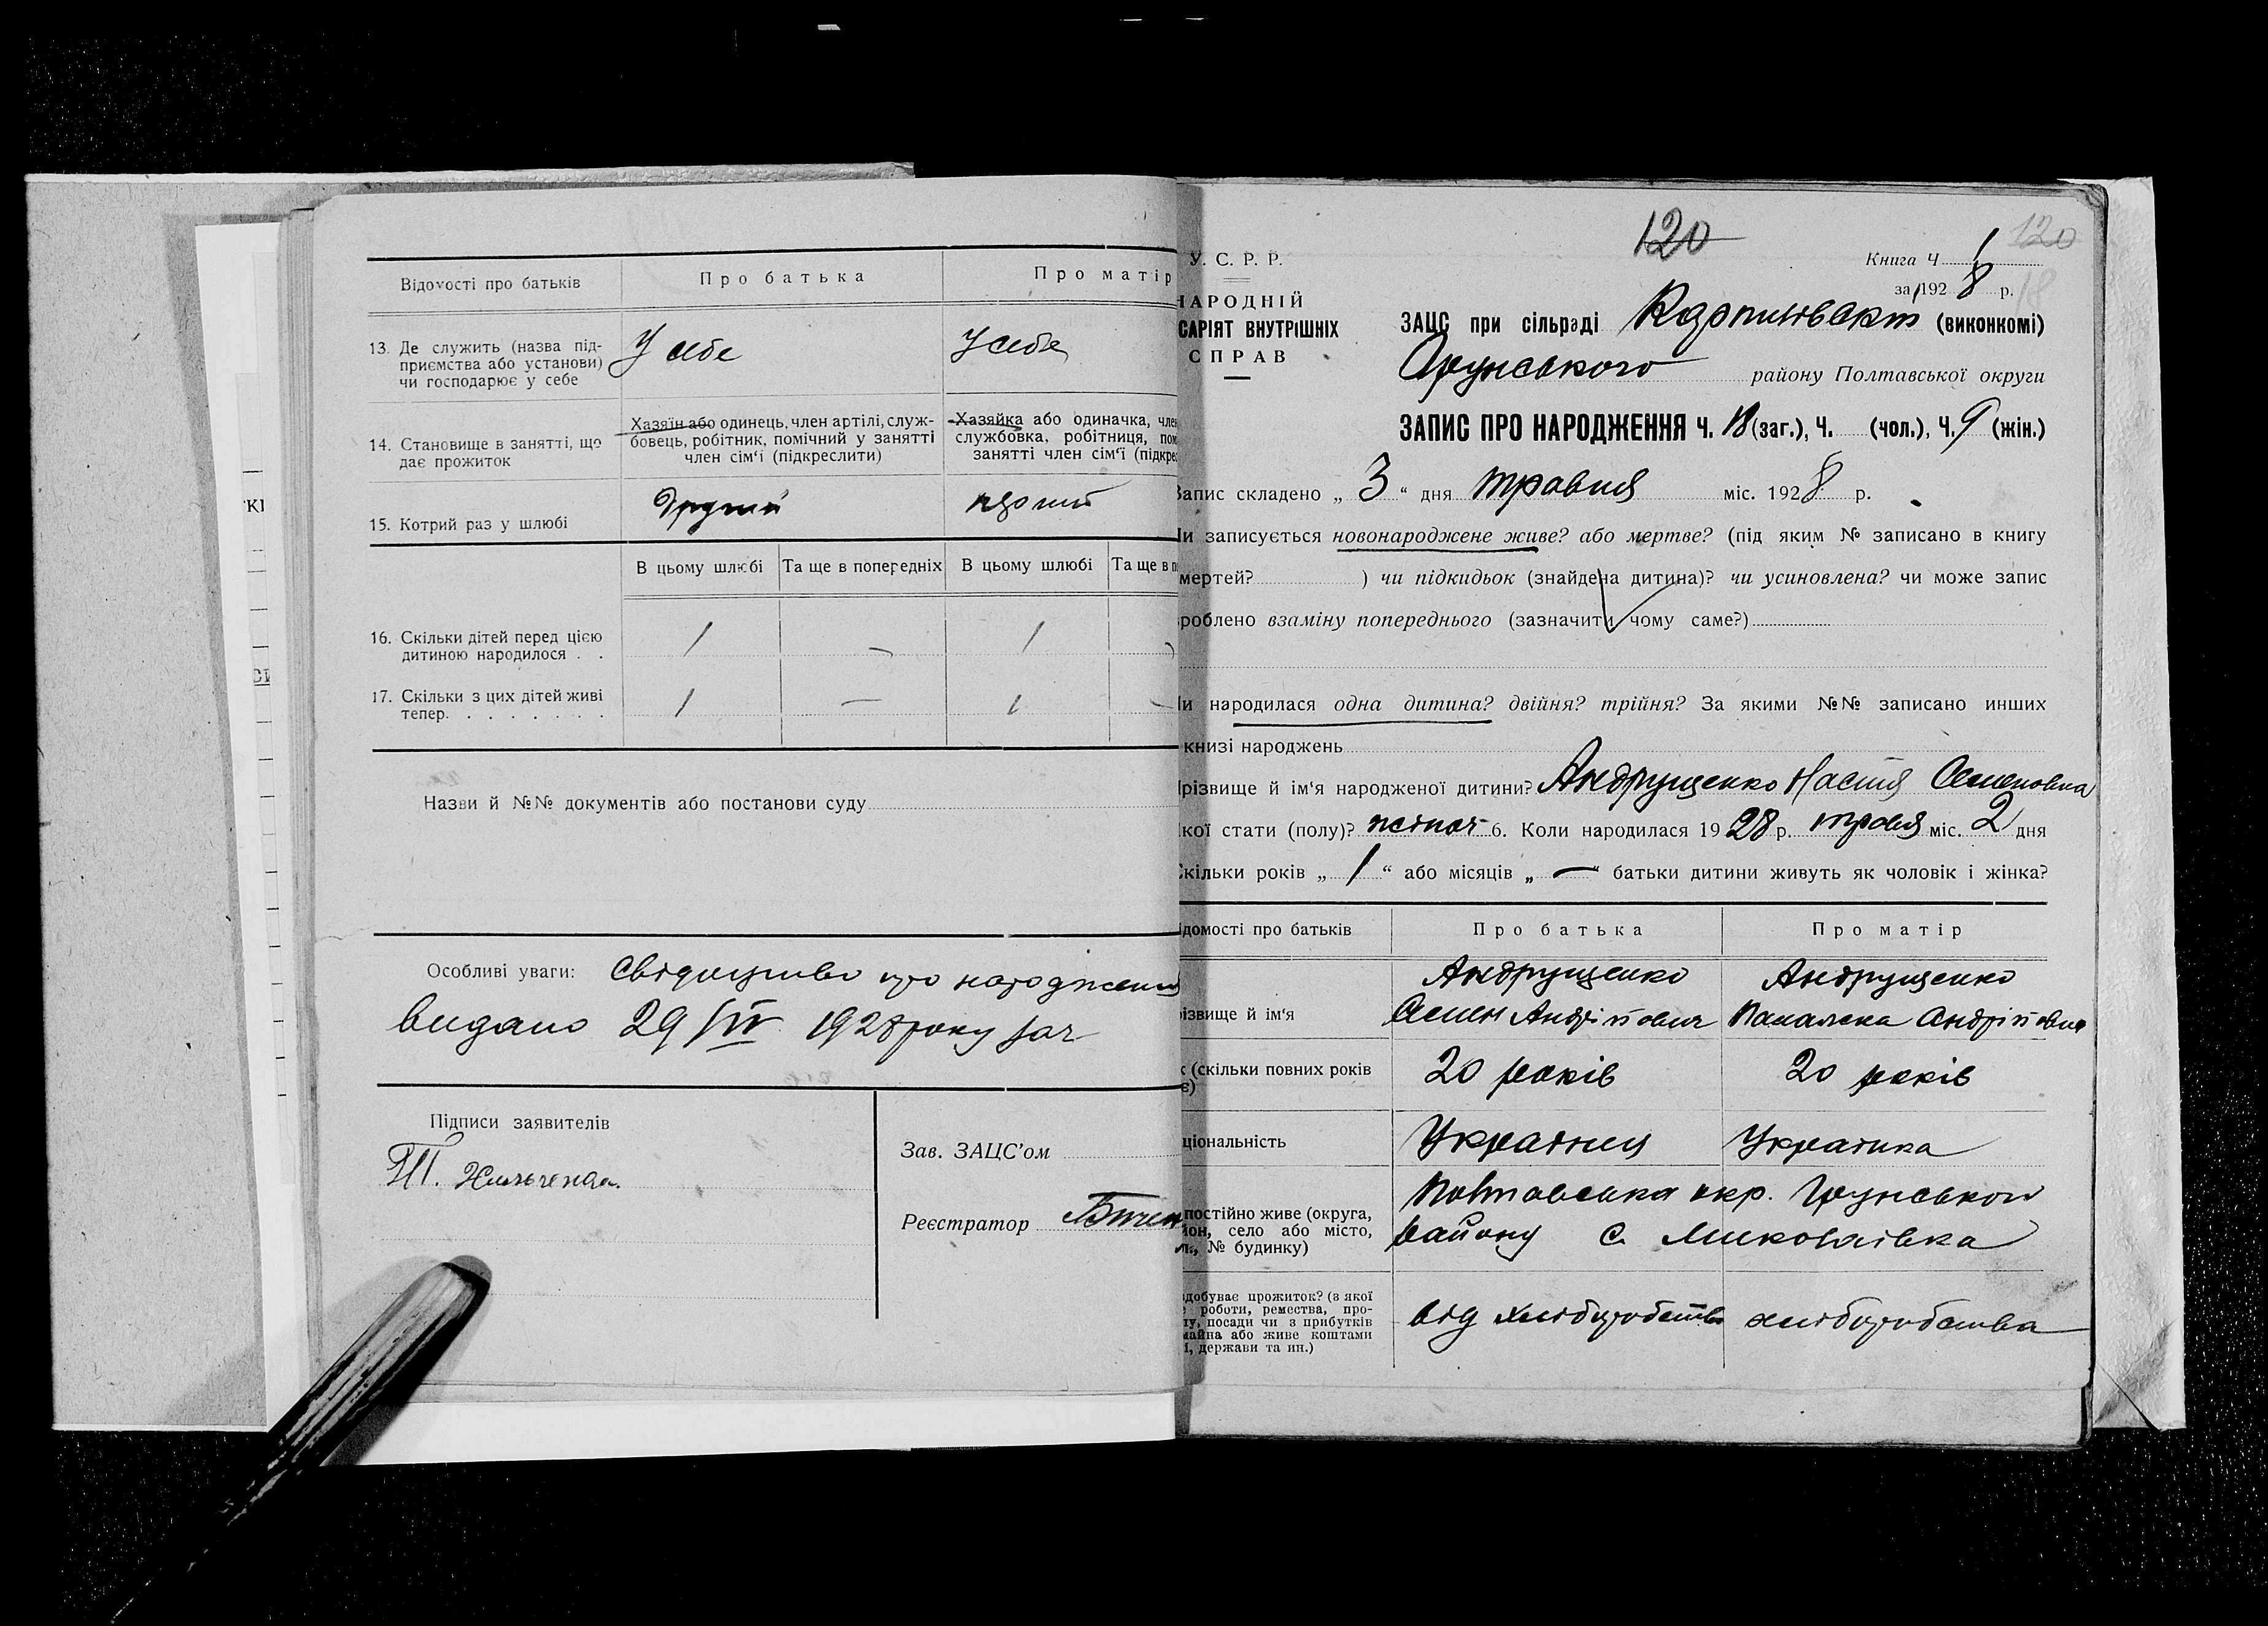 Відомості про батьків
Про батька
Про матір
13. Де служить (назва під-
приємства або установи)
чи господарює у себе
У себе
У себе
14. Становище в занятті, що
дає прожиток
Хазяїн або одинець, член артілі, служ-
бовець, робітник, помічний у занятті
член сім'ї (підкреслити)
Хазяйка або одиначка, чле
службовка, робітниця, пом
занятті член сім'ї (підкре
15. Котрий раз у шлюбі
Другий
перший
В цьому шлюбі
Та ще в попередніх
В цьому шлюбі
Та ще в п
16. Скільки дітей перед цією
дитиною народилося . .
1
1
17. Скільки з цих дітей живі
тепер. . . . . . . .
1
—
1
—
Назви й №№ документів або постанови суду
Особливі уваги: Свідоцтво про народження
видано 29/IV 1928 року
Підписи заявителів
Зав. ЗАЦС'ом
Реєстратор
КІ
120
120
18
У. С. Р. Р.
НАРОДНІЙ
САРІЯТ ВНУТРІШНІХ
СПРАВ
Книга Ч 1
за 1928 р.
ЗАЦС при сільраді (виконкомі)
Грунського району Полтавської округи
ЗАПИС ПРО НАРОДЖЕННЯ Ч. 18 (заг.), Ч. (чол.), Ч. 9 (жін.)
Запис складено „ 3 “ дня травня міс. 1928 р.
Чи записується новонароджене живе? або мертве? (під яким № записано в книгу
мертей? ) чи підкидьок (знайдена дитина)? чи усиновлена? чи може запис
роблено взаміну попереднього (зазначити чому саме?)
Чи народилася одна дитина? двійня? трійня? За якими №№ записано инших
книзі народжень
різвище й ім'я народженої дитини? Андрущенко Настя Семеновна
кої стати (полу)? жіноч 6. Коли народилася 1928 р. травя міс. 2 дня
Скільки років „ 1 “ або місяців „ — “ батьки дитини живуть як чоловік і жінка?
ідомості про батьків
Про батька
Про матір
різвище й ім'я
Андрущенко
Семен Андрійович
Андрущенко
Андрійовна
к (скільки повних років
є)
20 років
20 років
ціональність
Украінець
Украінка
постійно живе (округа,
йон, село або місто,
№ будинку)
Полтавська окр. Грунського
району с. Миколаівка
здобуває прожиток? (в якої
роботи, ремества, про-
лу, посади чи з прибутків
майна або живе коштами
ї, держави та ин.)
від хліборобства
хліборобства